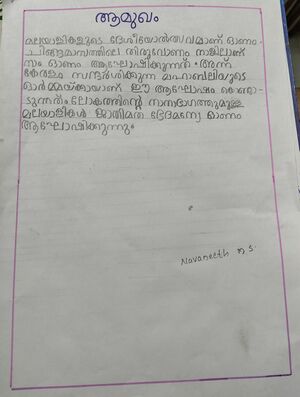 ആമുഖം
മലയാളികളുടെ ദേശീയോൽത്സവമാണ് ഓണം.
ചിങ്ങമാസത്തിലെ തിരുവോണം നാളിലാണ്
നാം ഓണം ആഘോഷിക്കുന്നത്. അന്ന്
കേരളം സന്ദർശിക്കുന്ന മഹാബലിയുടെ
ഓർമ്മയ്ക്കായാണ് ഈ ആഘോഷം കൊണ്ടാ-
ടുന്നത്. ലോകത്തിന്റെ നാനാഭാഗത്തുമുള്ള
മലയാളികൾ ജാതിമത ഭേദമന്യേ ഓണം
ആഘോഷിക്കുന്നു.
Navaneeth M S.